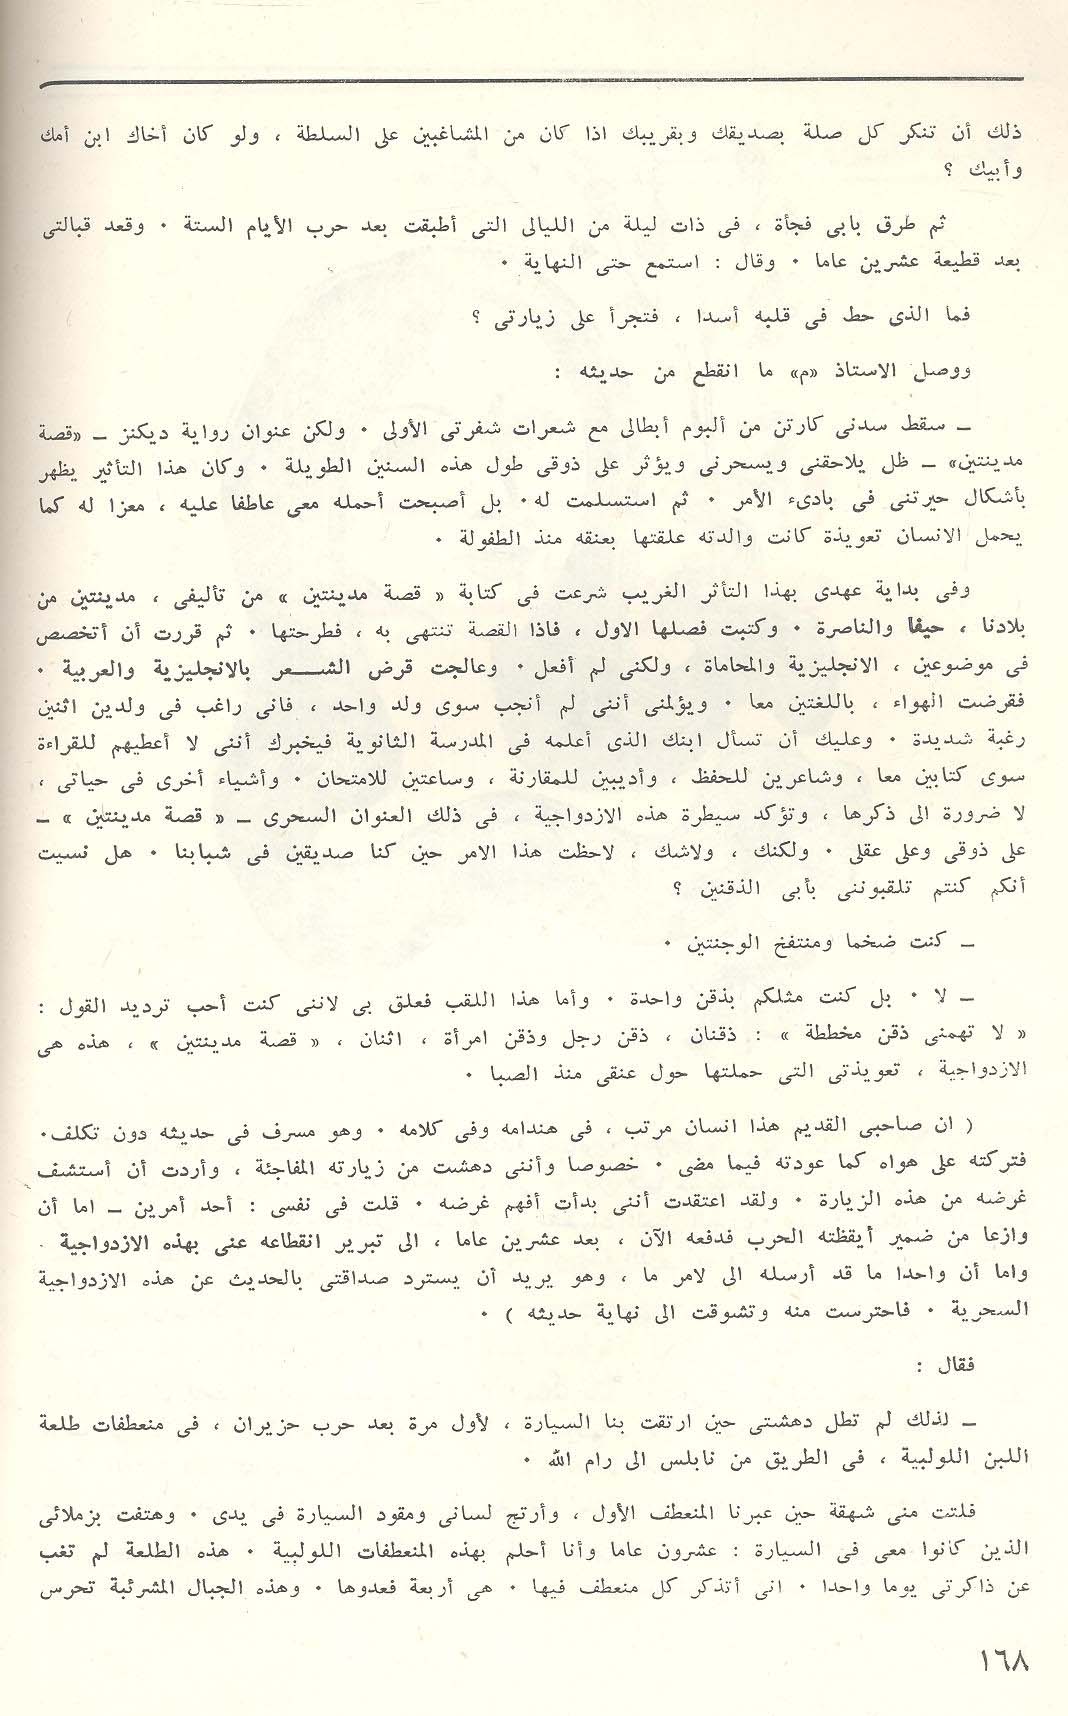 ذلك أن تنكر كل صلة بصديقك وبقريبك اذا كان من المشاغبين على السلطة ، ولو كان أخاك ابن أمك
وأبيك ؟
ثم طرق بابى فجأة ، فى ذات ليلة من الليالى التى أطبقت بعد حرب الأيام الستة ٠ وقعد قبالتى
بعد قطيعة عشرين عاما ٠ وقال : استمع حتى النهاية ٠
فما الذى حط فى قلبه أسدا ، فتجرأ على زيارتى ؟
ووصل الاستاذ «م» ما انقطع من حديثه :
ــ سقط سدنى كارتن من ألبوم أبطالى مع شعرات شفرتى الأولى ٠ ولكن عنوان رواية ديكنز ــ «قصة
مدينتين» ــ ظل يلاحقنى ويسحرنى ويؤثر على ذوقى طول هذه السنين الطويلة ٠ وكان هذا التأثير يظهر
بأشكال حيرتنى فى بادىء الأمر ٠ ثم استسلمت له٠ بل أصبحت أحمله معى عاطفا عليه ، معزا له كما
يحمل الانسان تعويذة كانت والدته علقتها بعنقه منذ الطفولة ٠
وفى بداية عهدى بهذا التأثر الغريب شرعت فى كتابة « قصة مدينتين » من تأليفى ، مدينتين من
بلادنا ، حيفا والناصرة ٠ وكتبت فصلها الاول ، فاذا القصة تنتهى به ، فطرحتها ٠ ثم قررت أن أتخصص
فى موضوعين ، الانجليزية والمحاماة ، ولكنى لم أفعل ٠ وعالجت قرض الشـــعر بالانجليزية والعربية ٠
فقرضت الهواء ، باللغتين معا ٠ ويؤلمنى أننى لم أنجب سوى ولد واحد ، فانى راغب فى ولدين اثنين
رغبة شديدة ٠ وعليك أن تسأل ابنك الذى أعلمه فى المدرسة الثانوية فيخبرك أننى لا أعطيهم للقراءة
سوى كتابين معا ، وشاعرين للحفظ ، وأديبين للمقارنة ، وساعتين للامتحان ٠ وأشياء أخرى فى حياتى ،
لا ضرورة الى ذكرها ، وتؤكد سيطرة هذه الازدواجية ، فى ذلك العنوان السحرى ــ « قصة مدينتين » ــ
على ذوقى وعلى عقلى ٠ ولكنك ، ولاشك ، لاحظت هذا الامر حين كنا صديقين فى شبابنا ٠ هل نسيت
أنكم كنتم تلقبوننى بأبى الذقنين ؟
ــ كنت ضخما ومنتفخ الوجنتين ٠
ــ لا ٠ بل كنت مثلكم بذقن واحدة ٠ وأما هذا اللقب فعلق بى لاننى كنت أحب ترديد القول :
« لا تهمنى ذقن مخططة » : ذقنان ، ذقن رجل وذقن امرأة ، اثنان ، « قصة مدينتين » ، هذه هى
الازدواجية ، تعويذتى التى حملتها حول عنقى منذ الصبا ٠
( ان صاحبى القديم هذا انسان مرتب ، فى هندامه وفى كلامه ٠ وهو مسرف فى حديثه دون تكلف٠
فتركته على هواه كما عودته فيما مضى ٠ خصوصا وأننى دهشت من زيارته المفاجئة ، وأردت أن أستشف
غرضه من هذه الزيارة ٠ ولقد اعتقدت أننى بدأت أفهم غرضه ٠ قلت فى نفسى : أحد أمرين ــ اما أن
وازعا من ضمير أيقظته الحرب فدفعه الآن ، بعد عشرين عاما ، الى تبرير انقطاعه عنى بهذه الازدواجية ٠
واما أن واحدا ما قد أرسله الى لامر ما ، وهو يريد أن يسترد صداقتى بالحديث عن هذه الازدواجية
السحرية ٠ فاحترست منه وتشوقت الى نهاية حديثه ) ٠
فقال :
ــ لذلك لم تطل دهشتى حين ارتقت بنا السيارة ، لأول مرة بعد حرب حزيران ، فى منعطفات طلعة
اللبن اللولبية ، فى الطريق من نابلس الى رام الله ٠
فلتت منى شهقة حين عبرنا المنعطف الأول ، وأرتج لسانى ومقود السيارة فى يدى ٠ وهتفت بزملائى
الذين كانوا معى فى السيارة : عشرون عاما وأنا أحلم بهذه المنعطفات اللولبية ٠ هذه الطلعة لم تغب
عن ذاكرتى يوما واحدا ٠ انى أتذكر كل منعطف فيها ٠ هى أربعة فعدوها ٠ وهذه الجبال المشرئبة تحرس
١٦٨